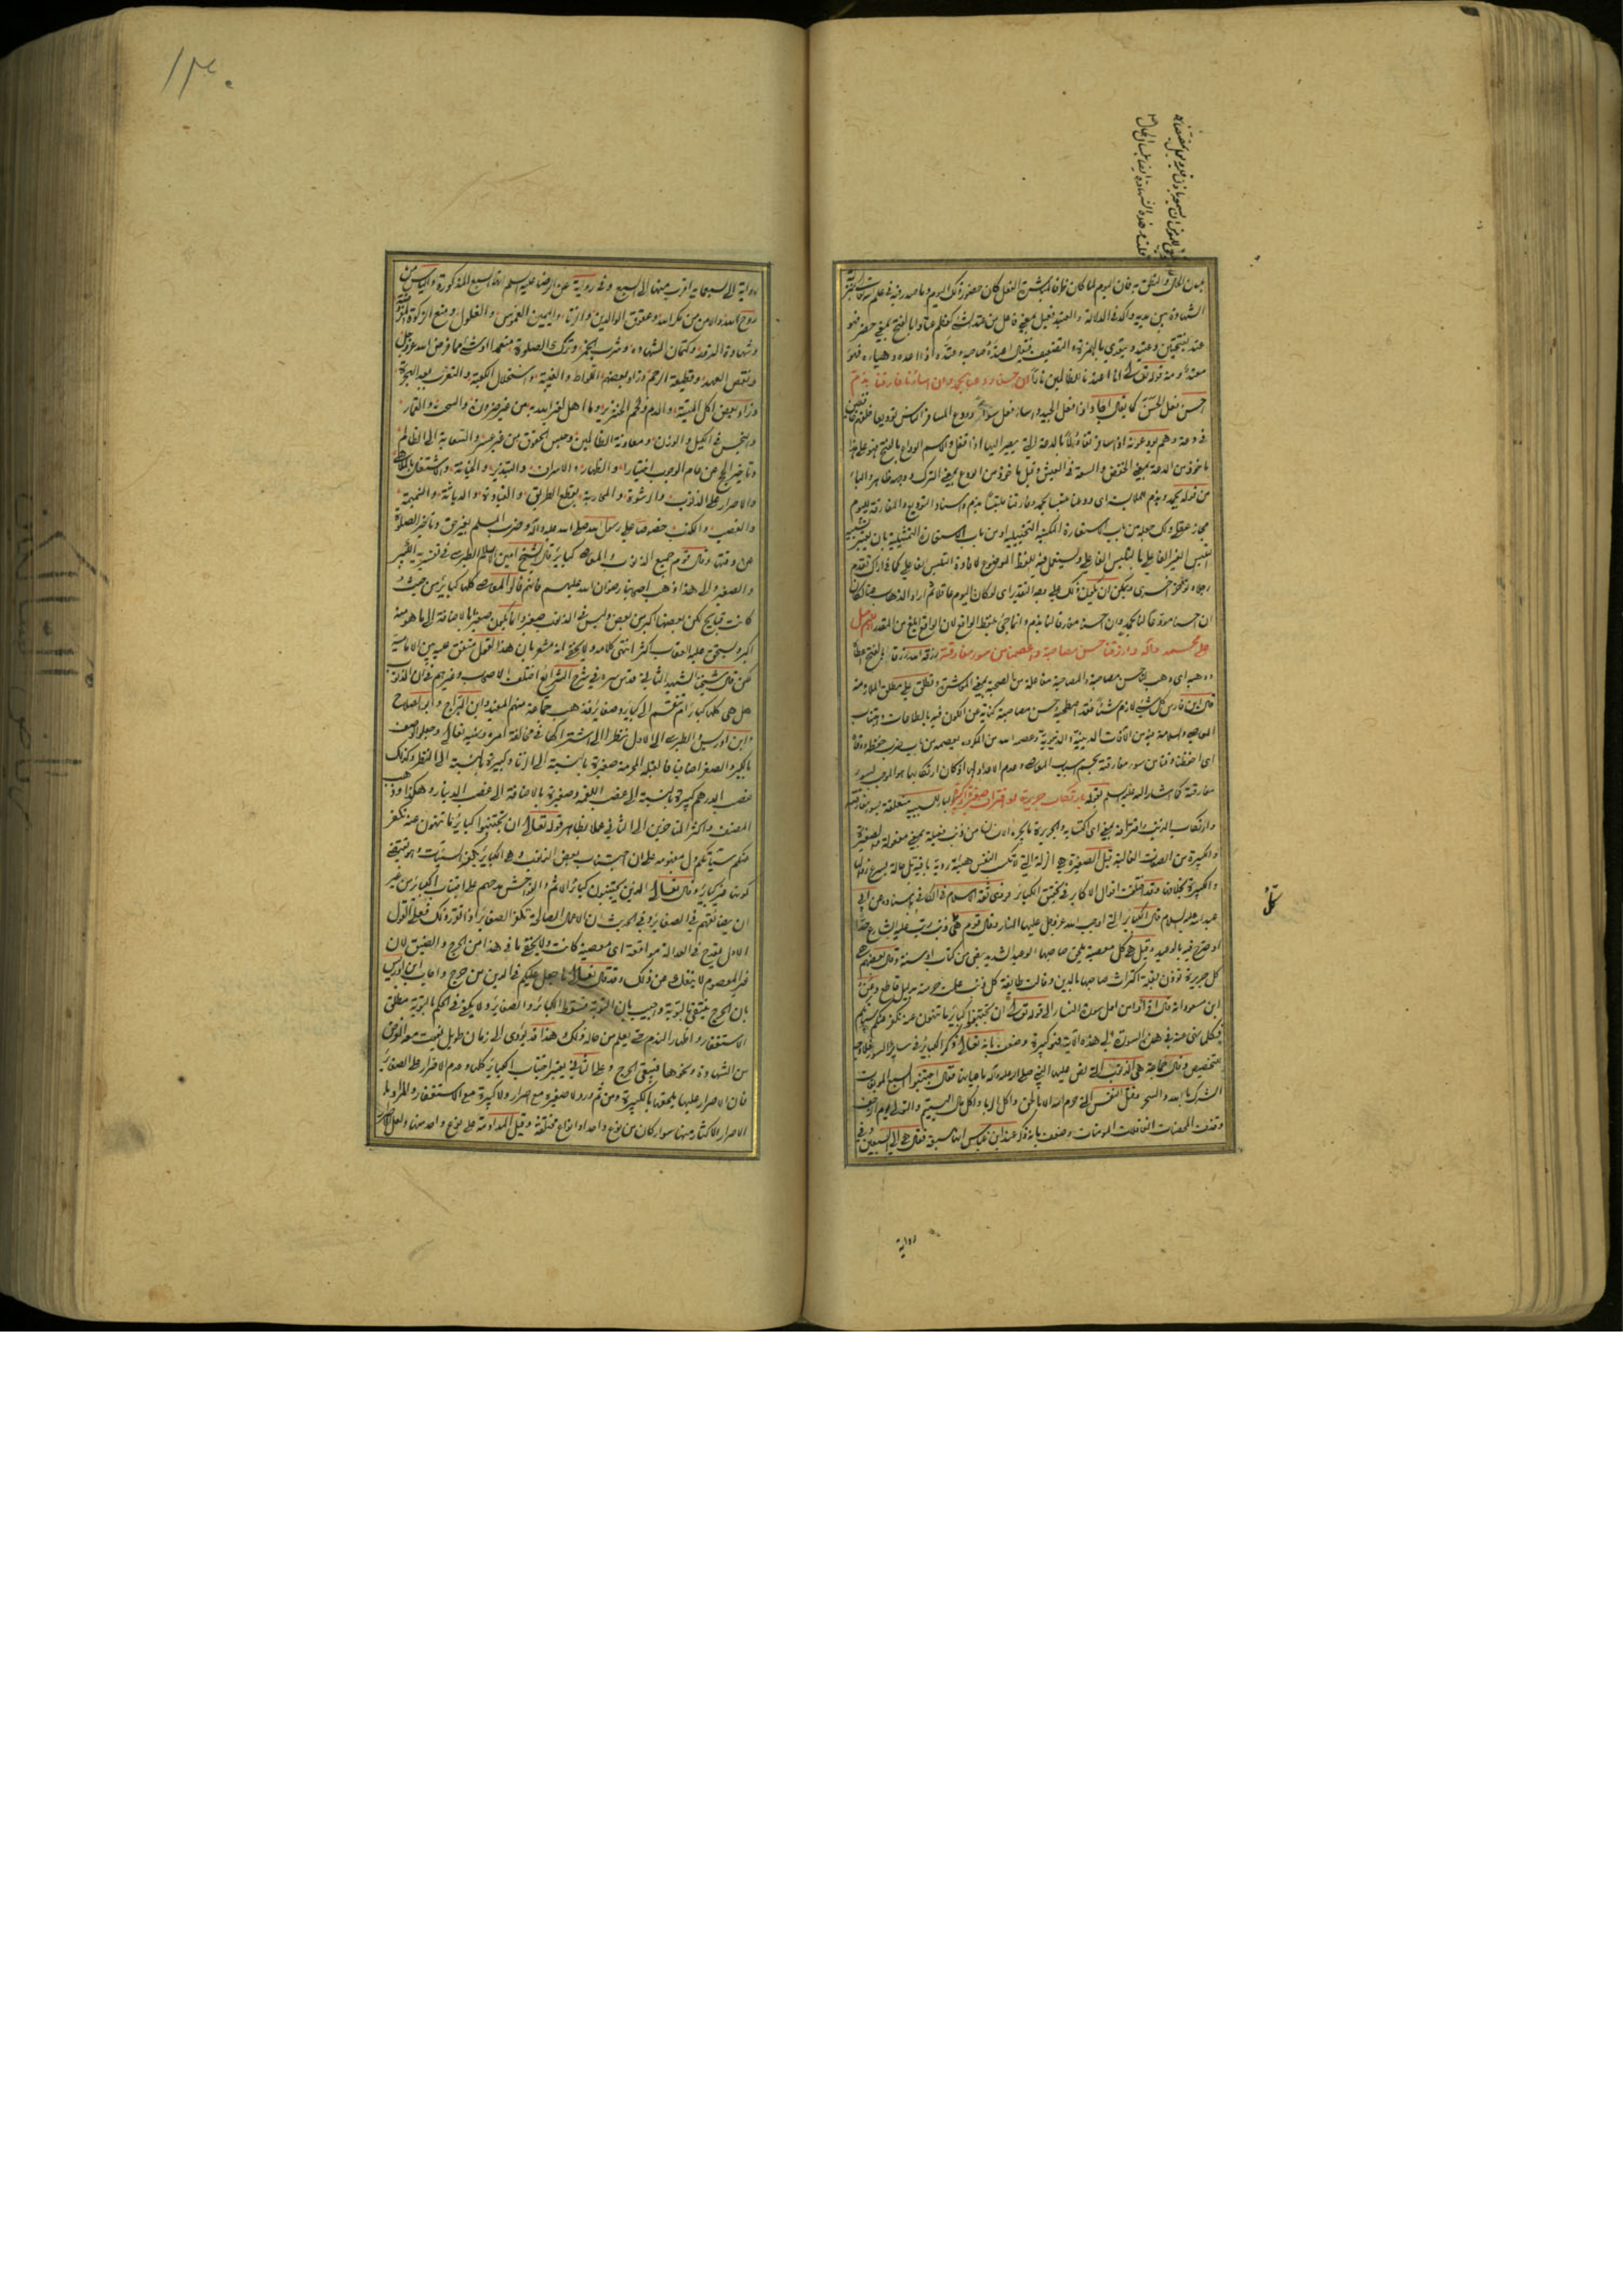 الشهادة بين يديه وآكد في الدلالة والعتيد فعيل بمعنى فاعل من عتد الشيء كعظم عتادا بالفتح بمعنى حضر فهو
عتد بفتحتين وعتيد ويتعدى بالهمزة والتضعيف فيقال اعتده صاحبه وعتده اذا اعده وهياه فهو
معتد ومنه قوله تعالى انا اعتدنا للظالمين نارا ان احسنا ودعنا بحمد وان اسأنا فارقنا بذم
احسن فعل الحسن كما يقال اجاد اذا فعل الجيد واساء فعل سوءا وودع المسافر الناس توديعا خلفهم
في دعة وهم يودعونه اذا سافر تفاؤلا بالدعة التي يصير اليها اذا قفل والاسم الوداع بالفتح
ماخوذ من الدعة بمعنى الخفض والسعة في العيش وقيل ماخوذ من الودع بمعنى الترك ووجهه ظاهر والباء
من قوله بحمد وبذم للملابسة اى ودعنا متلبسا بحمد وفارقنا ملتبسا بذم واسناد التوديع والمفارقة لليوم
مجاز عقلي ولك جعله من باب الاستعارة المكنية التخييلية او من باب الاستعارة التمثيلية بان يعتبر تشبيه
التلبس الغير الفاعلي بالتلبس الفاعلي ويستعمل فيه اللفظ الموضوع لافادة التلبس الفاعلي كما في اراك تقدم
رجلا وتؤخر اخرى ويمكن ان يكون ذلك على وجه التقدير اى لو كان اليوم عاقلا ثم اراد الذهاب عنا لكان
ان احسنا مودعا لنا بحمد وان اسأنا مفارقا لنا بذم
على محمد وآله وارزقنا حسن مصاحبته واعصمنا من سوء مفارقته
وهبه اى وهب لنا حسن مصاحبته والمصاحبة مفاعلة من الصحبة بمعنى المعاشرة وتطلق على مطلق الملازمة
قال ابن فارس كل شيء لازم شيئا فقد استصحبه وحسن مصاحبته كناية عن الكون فيه بالطاعات واجتناب
المعاصي والسلامة فيه من الآفات الدينية والدنيوية وعصمه الله من المكروه يعصمه من باب ضرب حفظه ووقاه
اى احفظنا وقنا من سوء مفارقته بحسم اسباب المعاصي وعدم الاعداد لها اذ كان ارتكابها هو الموجب لسوء
مفارقته كما اشار اليه عليه السلام بقوله بارتكاب جريرة او اقتراف صغيرة او كبيرة الباء للسببية متعلقة بسوء مفارقته
وارتكاب الذنب واقترافه بمعنى اى اكتسابه والجريرة ما يجره الانسان من ذنب فعيلة بمعنى مفعولة والصغيرة
والكبيرة من الصفات الغالبة قيل الصغيرة هي الزلة التي لا تكسب النفس هيئة ردية باقية بل حالة يسرع زوالها
والكبيرة بخلافها وقد اختلفت اقوال الاكابر في تحقيق الكبائر فروى ثقة الاسلام في الكافي باسناده عن ابي
عبد الله عليه السلام قال الكبائر التي اوجب الله عز وجل عليها النار وقال قوم هي كل ذنب رتب عليه الشارع حدا
او صرح فيه بالوعيد وقيل هي كل معصية يلحق صاحبها الوعيد الشديد بنص من كتاب او سنة وقال بعضهم هي
كل جريرة تؤذن بقلة اكتراث صاحبها بالدين وقالت طائفة كل ذنب علمت حرمته بدليل قاطع وعن
ابن مسعود انه قال اقرأوا من اول سورة النساء الى قوله تعالى ان تجتنبوا كبائر ما تنهون عنه نكفر عنكم سيئاتكم
فكل ما نهي عنه في هذه السورة الى هذه الآية فهو كبيرة وضعف بانه تعالى ذكر الكبائر في سائر السور فلا وجه
للتخصيص وقال جماعة هي الذنوب التي نص عليها النبي صلى الله عليه وآله باعيانها فقال اجتنبوا السبع الموبقات
الشرك بالله والسحر وقتل النفس التي حرم الله الا بالحق واكل الربا واكل مال اليتيم والتولي يوم الزحف
وقذف المحصنات الغافلات المؤمنات وضعف بانه ذكر عند ابن عباس انها سبعة فقال هي الى السبعين وفي
كل
رواية
١٣٠
رواية الى سبعمائة اقرب منها الى السبع وفي رواية عن الرضا عليه السلام هذه السبع المذكورة واليأس من
روح الله والامن من مكر الله وعقوق الوالدين والزنا واليمين الغموس والغلول ومنع الزكوة
وشهادة الزور وكتمان الشهادة وشرب الخمر وترك الصلوة متعمدا او شيء مما فرض الله عز وجل
ونقض العهد وقطيعة الرحم وزاد بعضهم اللواط والغيبة واستحلال الكعبة والتعرب بعد الهجرة
وزاد بعض اكل الميتة والدم ولحم الخنزير وما اهل لغير الله به من غير ضرورة والسحت والقمار
والبخس في الكيل والوزن ومعاونة الظالمين وحبس الحقوق من غير عسر والسعاية الى الظالم
وتاخير الحج عن عام الوجوب اختيارا والظهار والاسراف والتبذير والخيانة والاشتغال بالملاهي
والاصرار على الذنوب والرشوة والمحاربة بقطع الطريق والقيادة والدياثة والنميمة
والغصب والكذب خصوصا على رسول الله صلى الله عليه وآله وضرب المسلم بغير حق وتاخير الصلوة
عن وقتها وقال قوم جميع الذنوب والمعاصي كبائر قال الشيخ امين الاسلام الطبرسي في تفسيره الكبير
والصغير والى هذا ذهب اصحابنا رضوان الله عليهم فانهم قالوا المعاصي كلها كبائر من حيث
كانت قبائح لكن بعضها اكبر من بعض وليس في الذنوب صغير وانما يكون صغيرا بالاضافة الى ما هو منه
اكبر ويستحق عليه العقاب اكثر انتهى كلامه ولا يخفى انه مشعر بان هذا القول متفق عليه بين الامامية
لكن قال شيخنا الشهيد الثاني قدس سره في شرح الشرائع اختلف الاصحاب وغيرهم في ان الذنوب
هل هي كلها كبائر ام تنقسم الى كبائر وصغائر فذهب جماعة منهم المفيد وابن البراج وابو الصلاح
وابن ادريس والطبرسي الى الاول نظرا الى اشتراكها في مخالفة امره ونهيه تعالى وجعلوا الوصف
بالكبر والصغر اضافيا فالقبلة المحرمة صغيرة بالنسبة الى الزنا وكبيرة بالنسبة الى النظر وكذلك
غصب الدرهم كبيرة بالنسبة الى غصب اللقمة وصغيرة بالاضافة الى غصب الدينار وهكذا وذهب
المصنف واكثر المتاخرين الى الثاني عملا بظاهر قوله تعالى ان تجتنبوا كبائر ما تنهون عنه نكفر
عنكم سيئاتكم دل بمفهومه على ان اجتناب بعض الذنوب وهي الكبائر يكفر السيئات وهو يقتضي
كونها غير كبائر وقال تعالى الذين يجتنبون كبائر الاثم والفواحش مدحهم على اجتناب الكبائر من غير
ان يضايقهم في الصغائر وفي الحديث ان الاعمال الصالحة تكفر الصغائر اذا تقرر ذلك فعلى القول
الاول يقدح في العدالة مواقعة اى معصية كانت ولا يخفى ما في هذا من الحرج والضيق لان
غير المعصوم لا ينفك عن ذلك وقد قال تعالى ما جعل عليكم في الدين من حرج واجاب ابن ادريس
بان الحرج ينتفي بالتوبة واجيب بان التوبة تسقط الكبائر والصغائر ولا يكفي في الحكم بالتوبة مطلق
الاستغفار واظهار الندم حتى يعلم من حاله ذلك وهذا قد يؤدى الى زمان طويل يفوت معه الغرض
من الشهادة ونحوها فيبقى الحرج وعلى الثاني يعتبر اجتناب الكبائر كلها وعدم الاصرار على الصغائر
فان الاصرار عليها يلحقها بالكبيرة ومن ثم ورد لا صغيرة مع اصرار ولا كبيرة مع الاستغفار والمراد با
الاصرار الاكثار منها سواء كان من نوع واحد او انواع مختلفة وقيل المداومة على نوع واحد منها ولعل